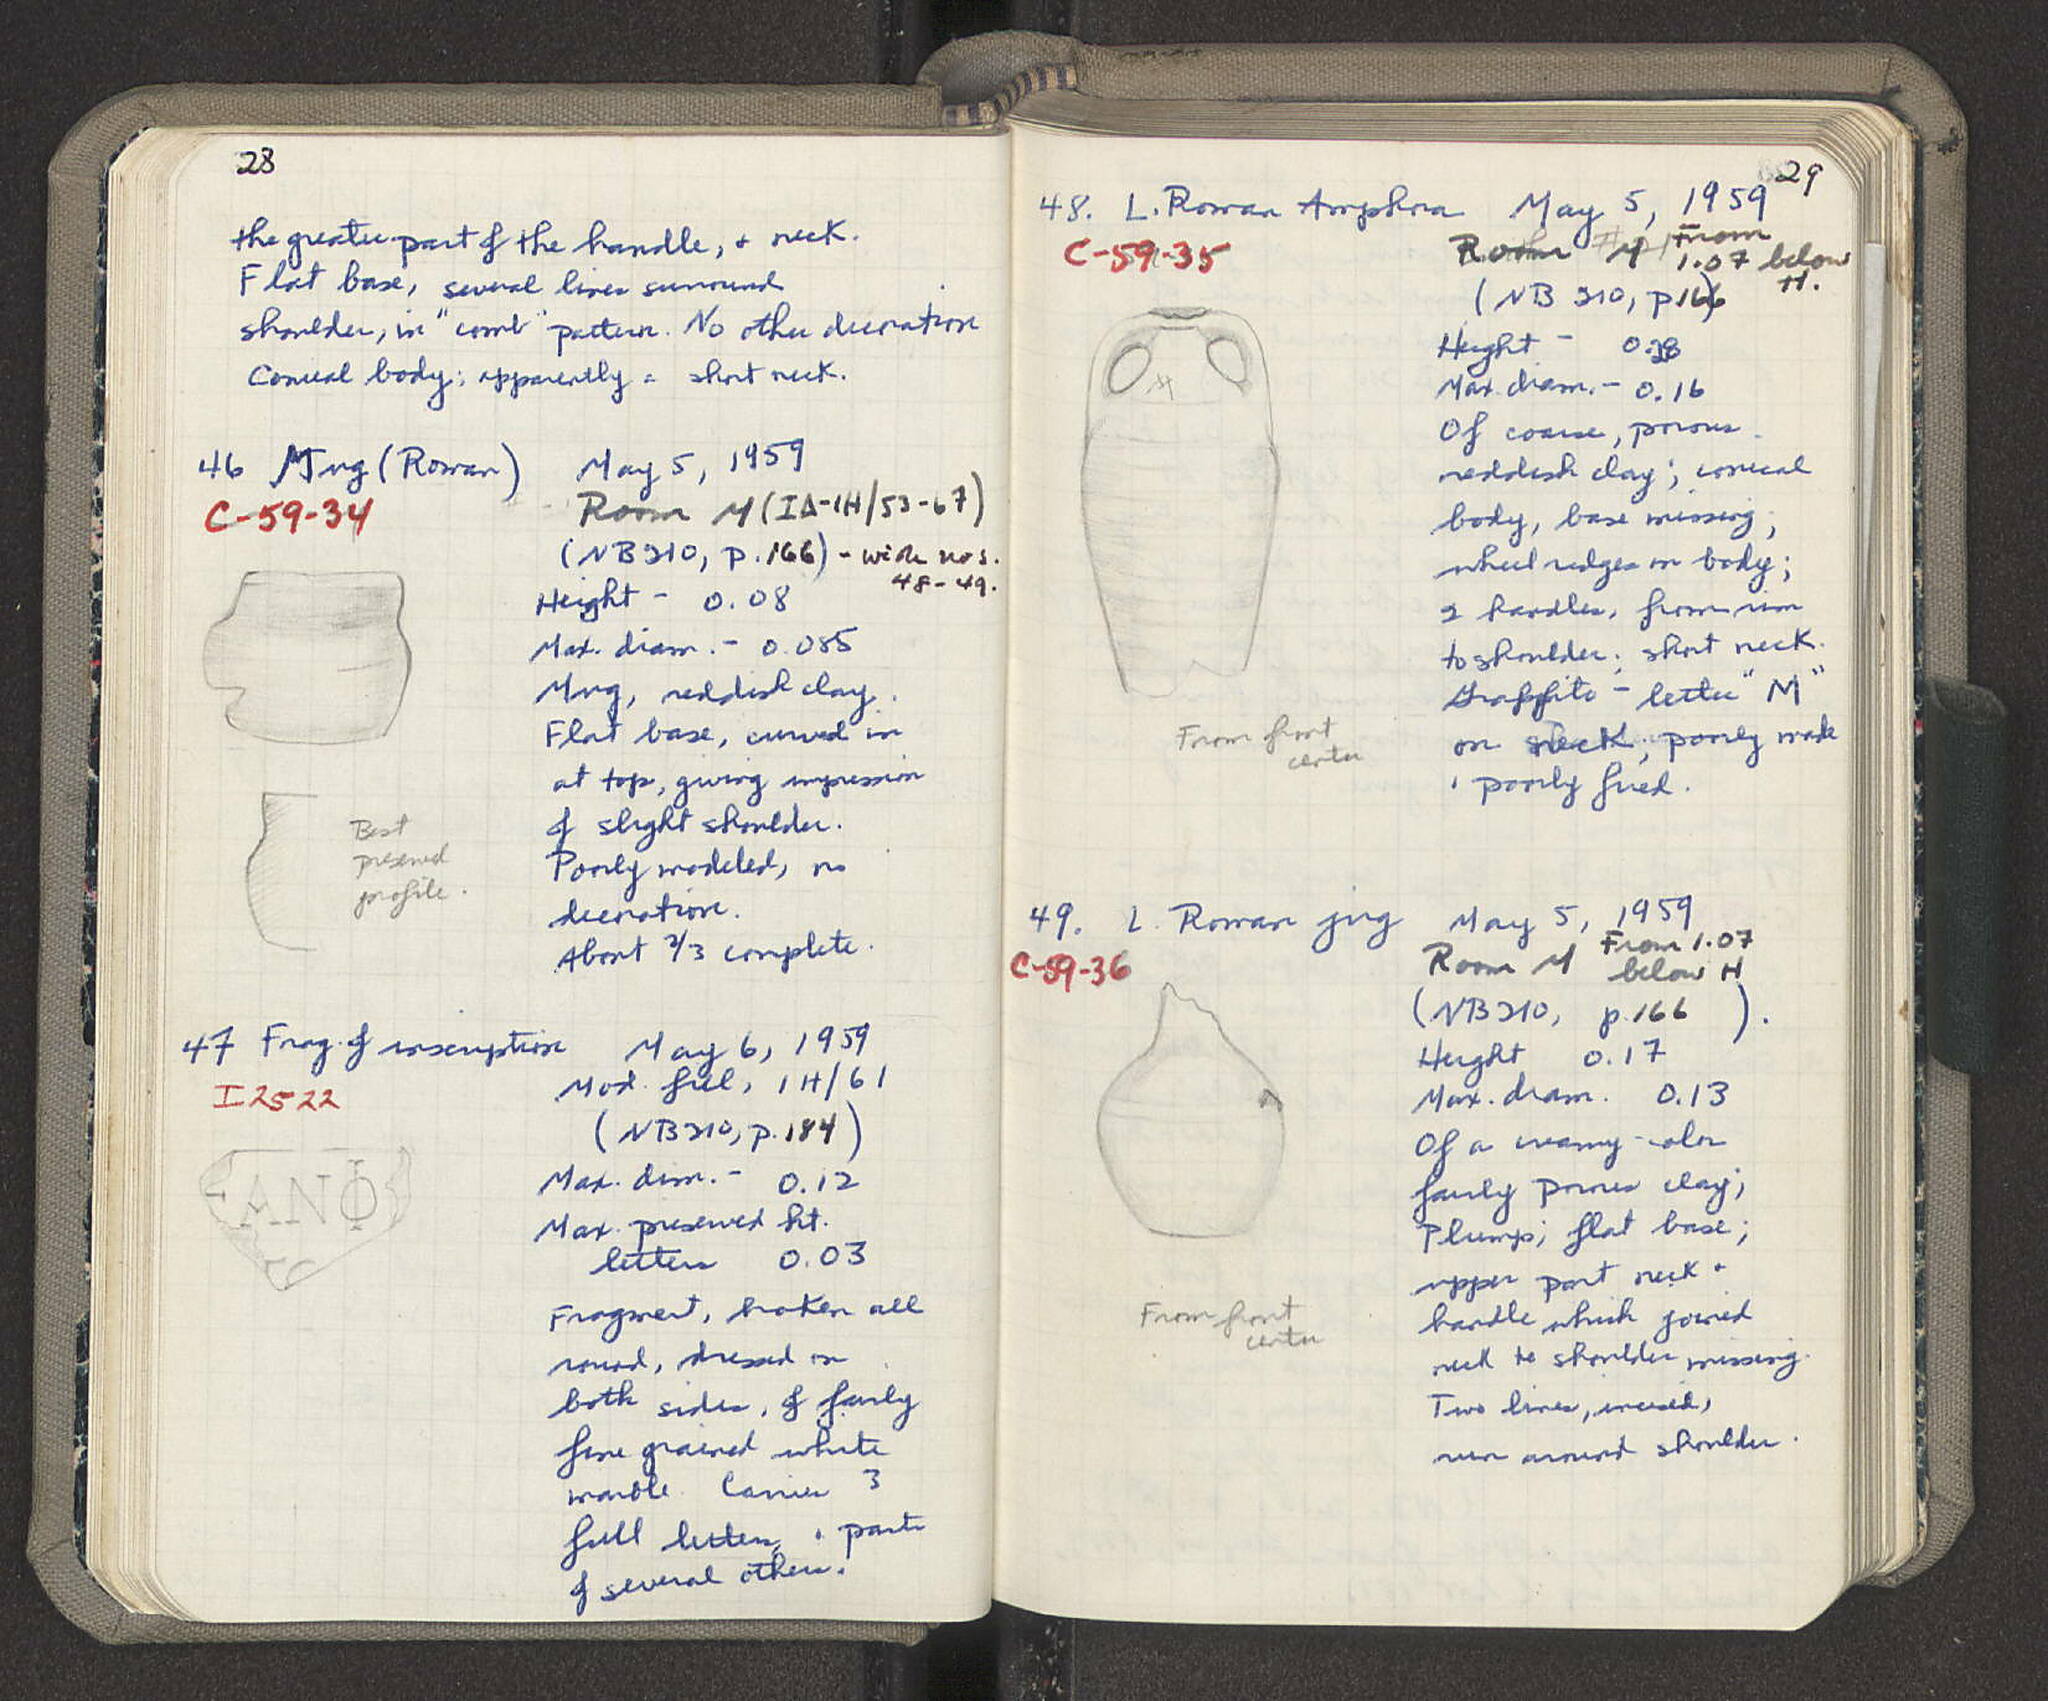 28
the greater part of the handle, + neck.
Flat base, several lines surround
shoulder, in "comb" pattern. No other decoration
Conical body; apparently a short neck.
46 Mug (Roman) May 5, 1959
C-59-34 Room M (IΔ-1H/53-67)
(NB 210, p. 166) - with nos.
48-49.
Height - 0.08
Max. diam. - 0.085
Mug, reddish clay.
Flat base, curved in
at top, giving impression
of slight shoulder.
Poorly modeled, no
decoration.
About 2/3 complete.
Best
preserved
profile.
47 Frag. of inscription May 6, 1959
I 2522 Mod. fill, 1H/61
(NB 210, p. 184)
ANΦ
Max. dim. - 0.12
Max. preserved ht.
letters 0.03
Fragment, broken all
round, dressed on
both sides, of fairly
fine grained white
marble. Carries 3
full letters, + parts
of several others.
29
48. L. Roman Amphora May 5, 1959
C-59-35 Room M From
1.07 below
H.
(NB 210, p166)
Height - 0.28
Max. diam. - 0.16
Of coarse, porous
reddish clay; conical
body, base missing;
wheel ridges on body;
2 handles, from rim
to shoulder; short neck.
Graffito - letter "M"
on neck; poorly made
+ poorly fired.
M
From front
center
49. L. Roman jug May 5, 1959
C-59-36 Room M From 1.07
below H
(NB 210, p. 166 ).
Height 0.17
Max. diam. 0.13
Of a creamy-color
fairly porous clay;
Plump; flat base;
upper part neck +
handle which joined
neck to shoulder missing.
Two lines, incised,
run around shoulder.
From front
center